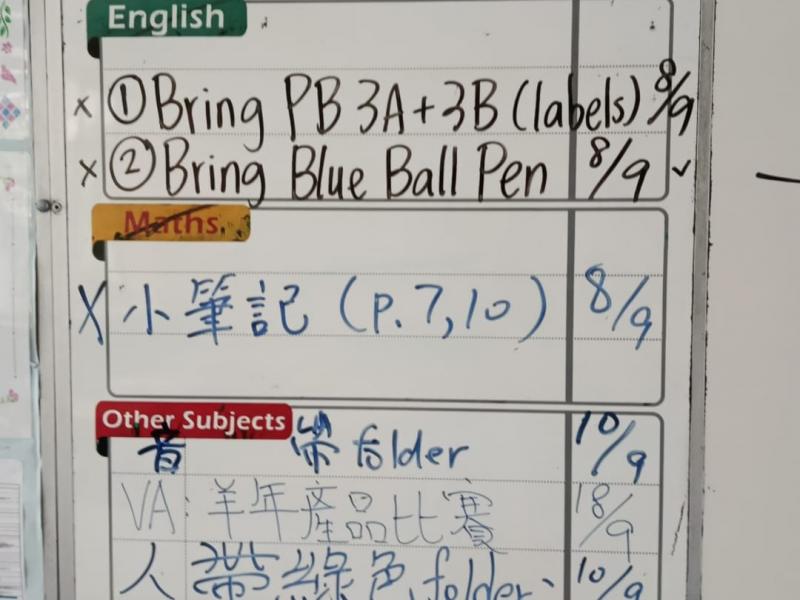 English
× ① Bring PB 3A+3B (labels) 8/9
× ② Bring Blue Ball Pen 8/9 ✓
Maths
X 小筆記 (p.7,10) 8/9
Other Subjects
音 帶 folder 10/9
VA: 羊年產品比賽 18/9
人 帶綠色folder、 10/9